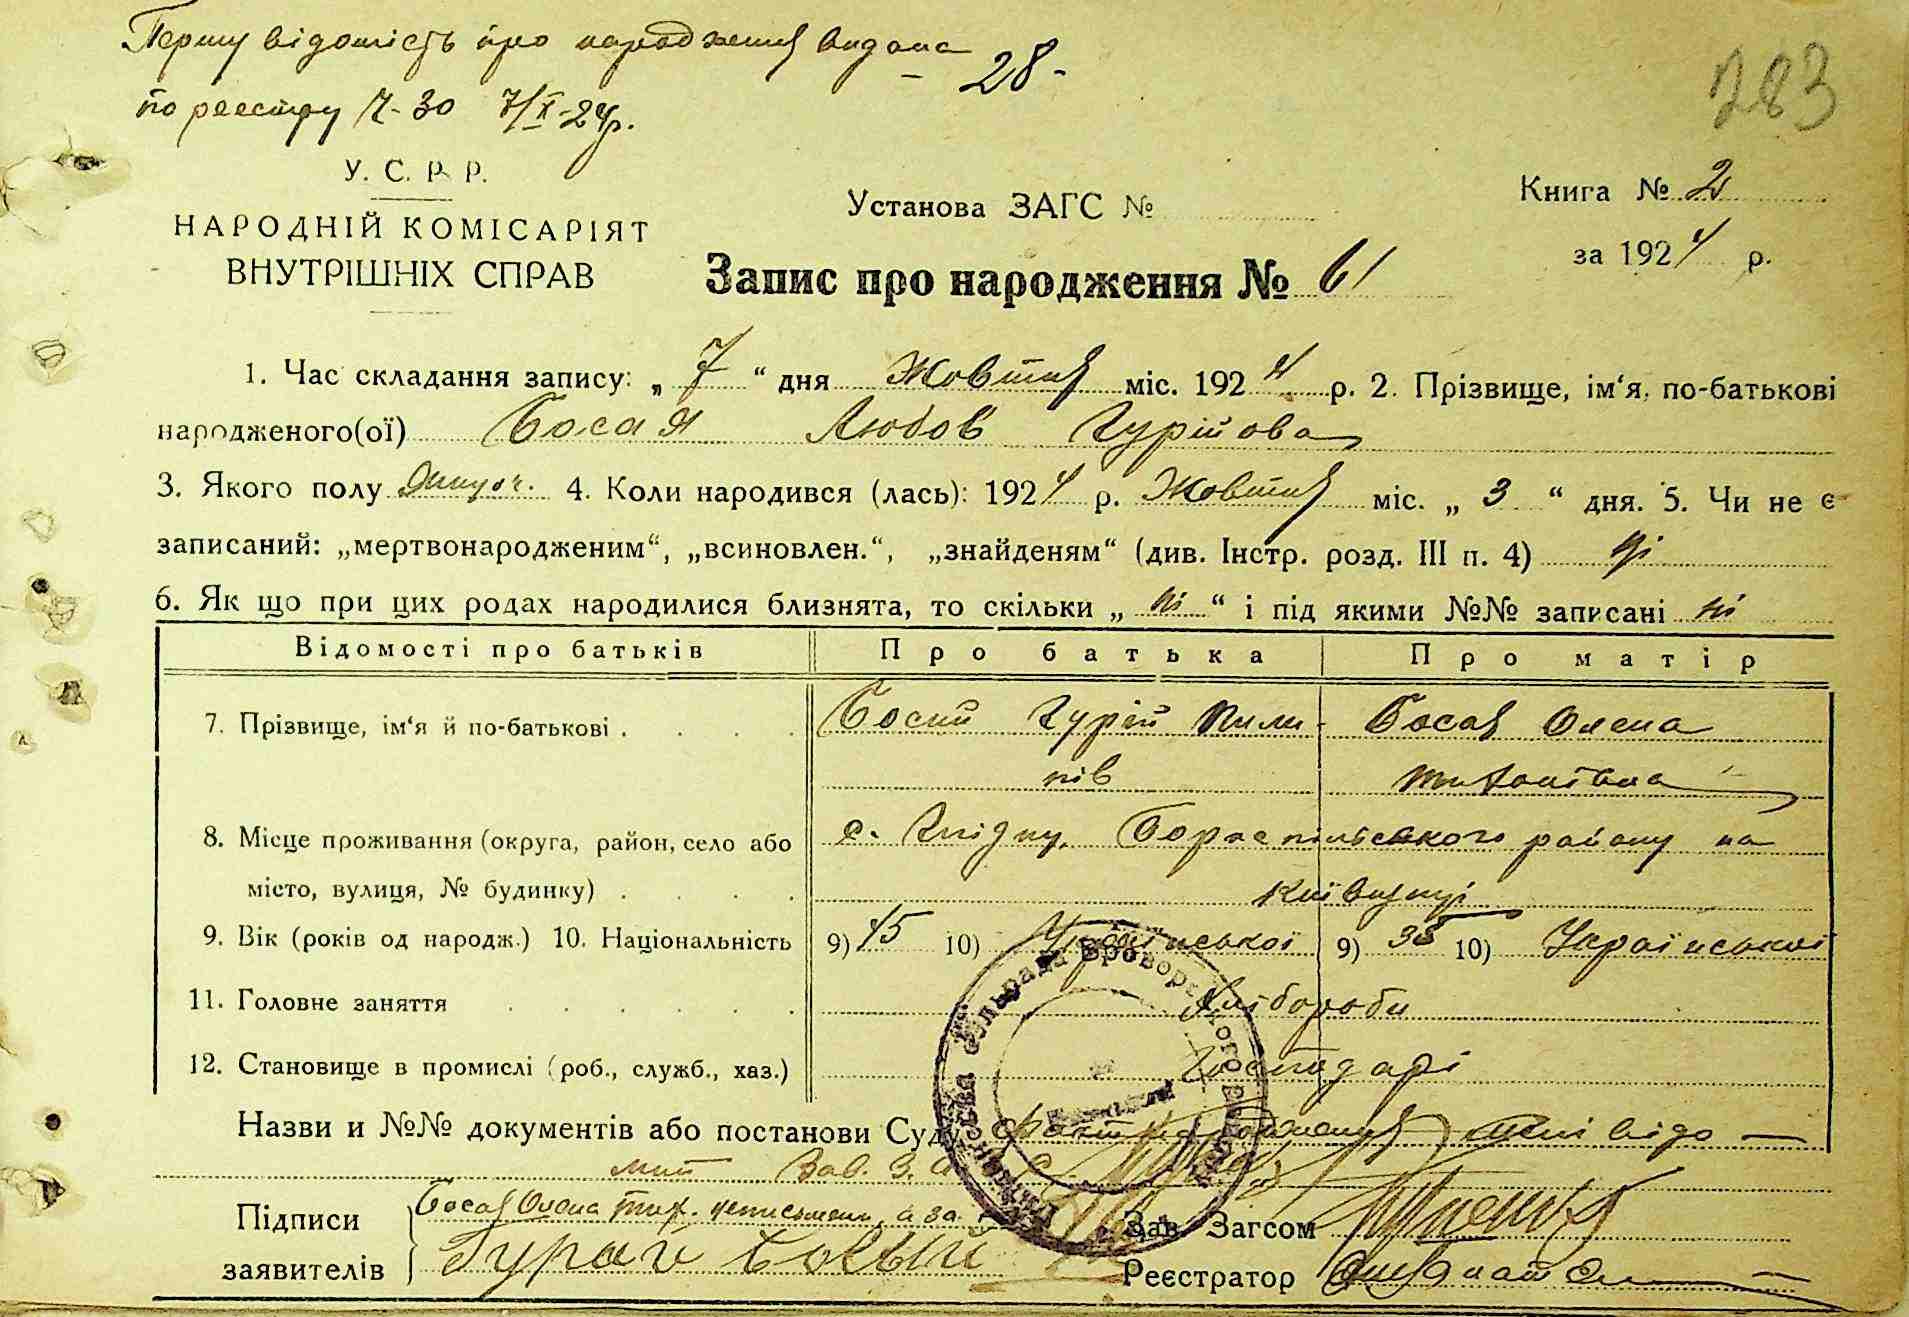 Першу відомість про народження видана
28-
283
по реестру Ч-30 7/X-24р.
У. С. Р. Р.
НАРОДНІЙ КОМІСАРІЯТ
ВНУТРІШНІХ СПРАВ
Установа ЗАГС №
Книга № 2
за 1924 р.
Запис про народження № 61
1. Час складання запису: „ 7 “ дня Жовтня міс. 1924 р. 2. Прізвище, ім‘я, по-батькові
народженого(ої) Босая Любов Гурійова
3. Якого полу 4. Коли народився (лась): 1924 р. Жовтня міс. „ 3 “ дня. 5. Чи не є
записаний: „мертвонародженим“, „всиновлен.“, „знайденям“ (див. Інстр. розд. III п. 4) ні
6. Як що при цих родах народилися близнята, то скільки „ ні “ і під якими №№ записані ні
Відомості про батьків Про батька Про матір
7. Прізвище, ім‘я й по-батькові . . . . Босий Гурій Пили- Босая Олена
пів Тихонівна
8. Місце проживання (округа, район, село або с. Гнідин, Бориспільського району на
місто, вулиця, № будинку) . . . . Київщині
9. Вік (років од народж.) 10. Національність 9) 45 10) Української 9) 35 10) Української
11. Головне заняття . . . . . Хлібороби
12. Становище в промислі (роб., служб., хаз.) Господарі
Назви и №№ документів або постанови Суду факт народження мені відо-
мий Зав. З.А.
Підписи Босая Олена Тих. неписьмен, а за
заявителів Гурай Босый
Зав. Загсом
Реєстратор